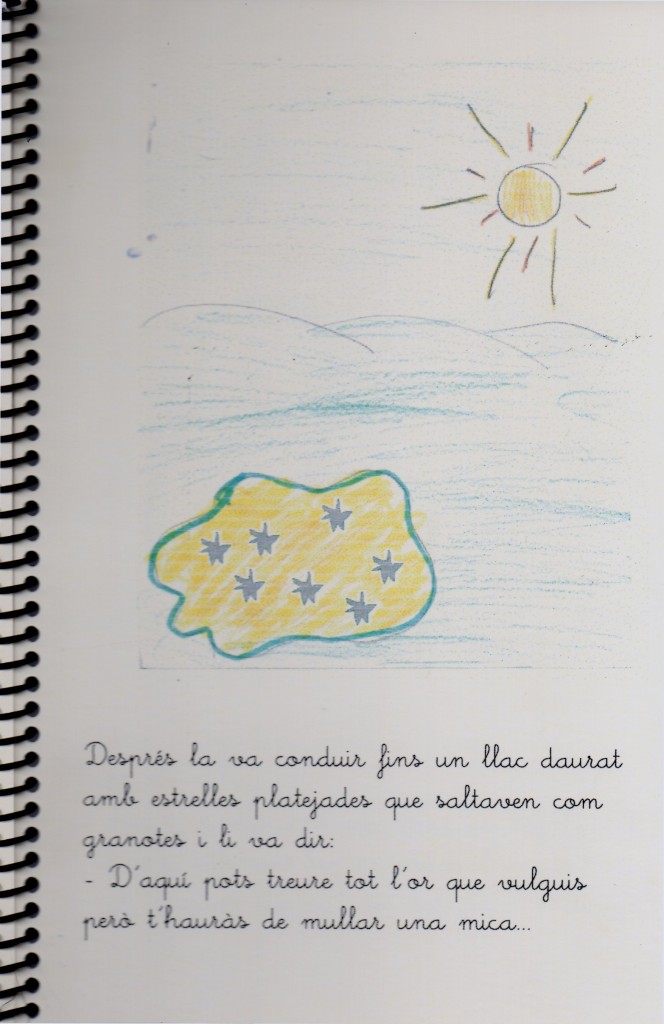 Després la va conduir fins un llac daurat
amb estrelles platejades que saltaven com
granotes i li va dir:
- D'aquí pots treure tot l'or que vulguis
però t'hauràs de mullar una mica...